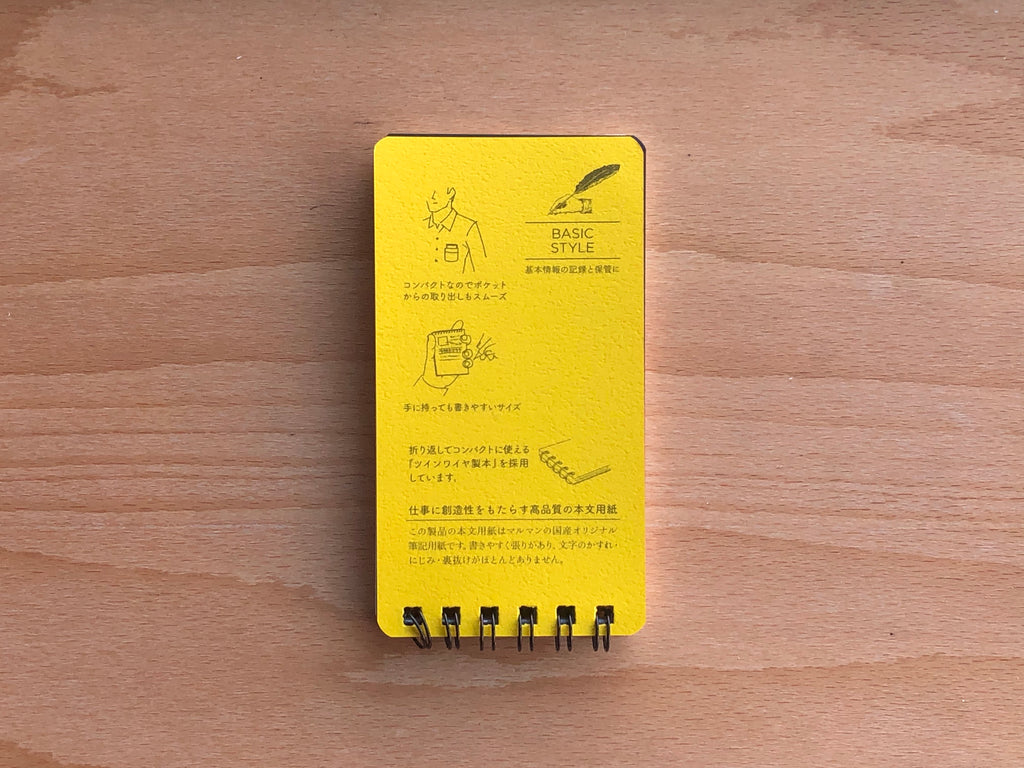 BASIC
STYLE
基本情報の記録と保管に
コンパクトなのでポケット
からの取り出しもスムーズ
手に持っても書きやすいサイズ
折り返してコンパクトに使える
「ツインワイヤ製本」を採用
しています。
仕事に創造性をもたらす高品質の本文用紙
この製品の本文用紙はマルマンの国産オリジナル
筆記用紙です。書きやすく張りがあり、文字のかすれ・
にじみ・裏抜けがほとんどありません。